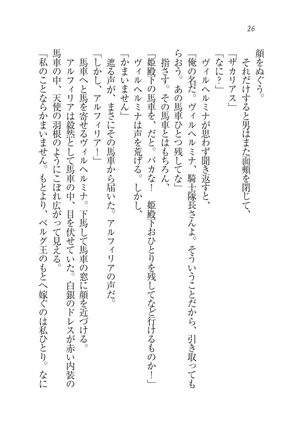 26
顔をぬぐう。
　それだけすると男はまた面頬を閉じて、
「ザカリアス」
「なに？」
　ヴィルヘルミナが思わず聞き返すと、
「俺の名だ。ヴィルヘルミナ、騎士隊長さんよ。そういうことだから、引き取ってもら
おう。あの馬車ひとつ残してな」
　指さす。その馬車とはもちろん、
「姫殿下の馬車を、だと。バカな！　姫殿下おひとりを残してなど行けるものか！」
　ヴィルヘルミナは声を荒げる。しかし、
「かまいません」
　遮る声が、まさにその馬車から届いた。アルフィリアの声だ。
「しかし、アルフィリア！」
　馬車へと馬を寄せるヴィルヘルミナ。下馬して馬車の窓に顔を近づける。
　アルフィリアは毅然として馬車の中、目を伏せていた。白銀のドレスが赤い内装の
馬車の中、天使の羽根のようにこぼれ広がって見える。
「私のことならかまいません。もとより、ベルグ王のもとへ嫁ぐのは私ひとり。なに